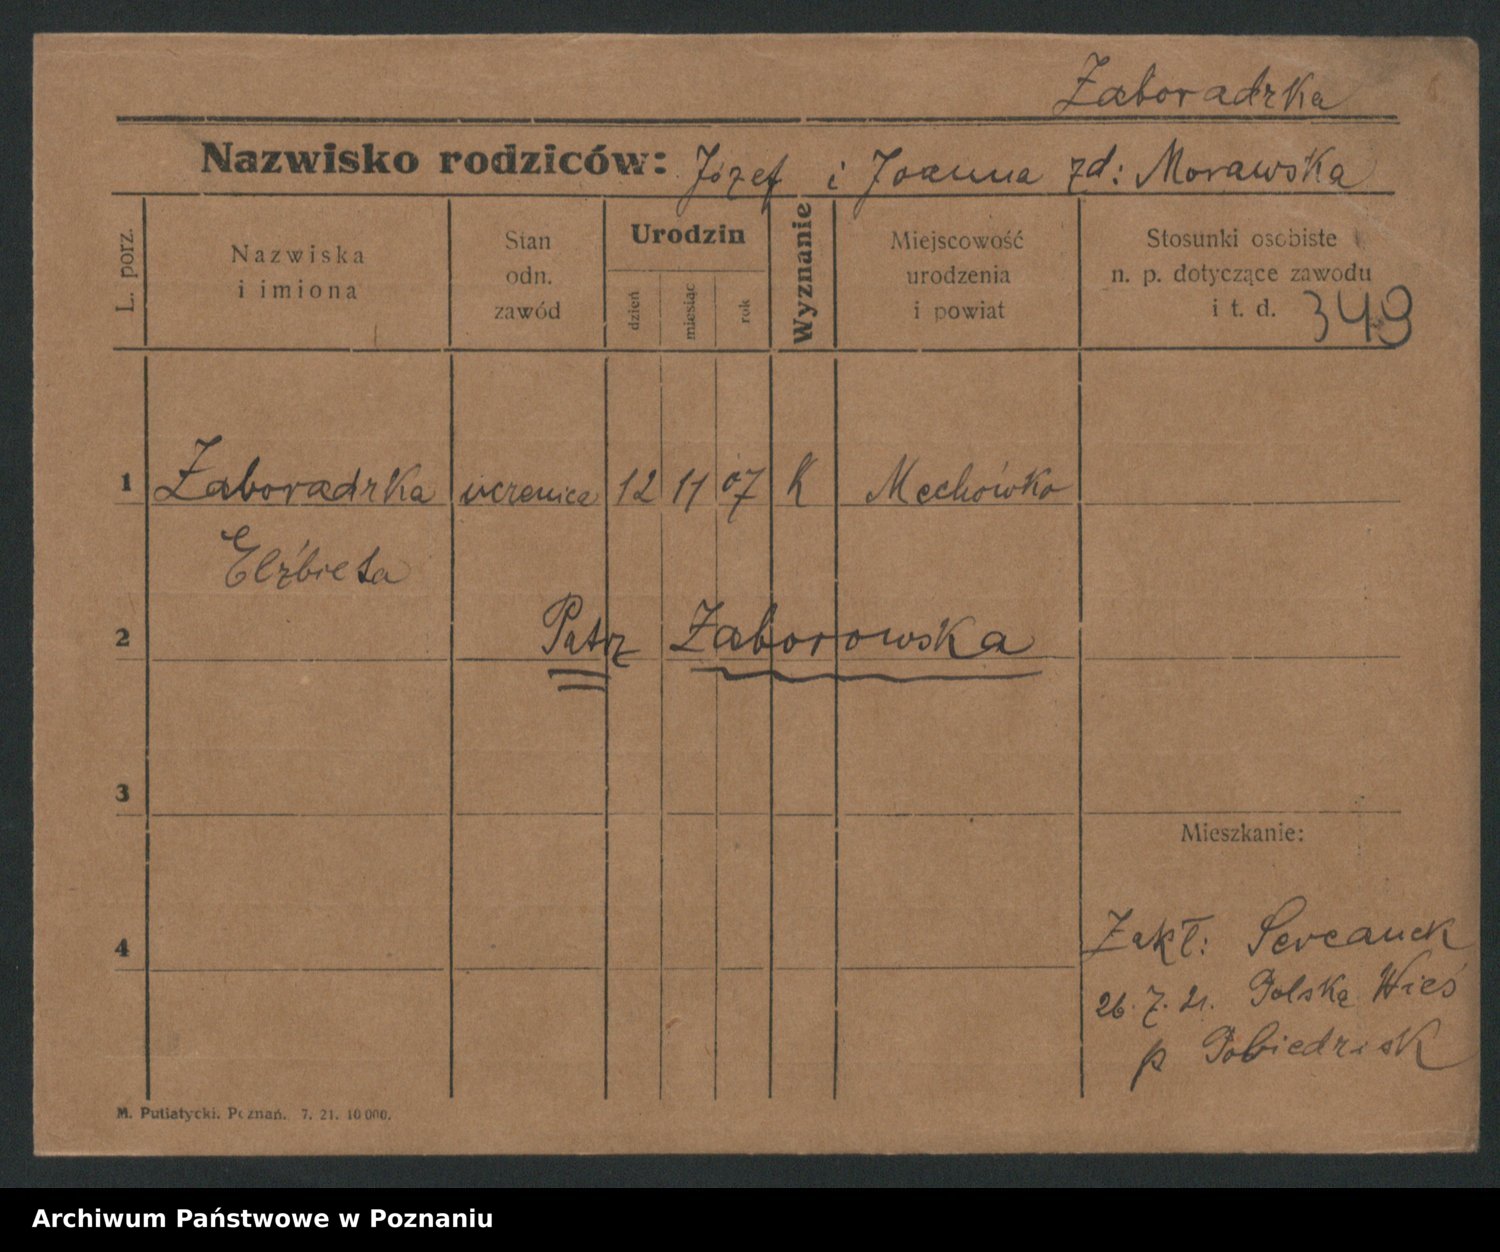 Zaboradzka
Nazwisko rodziców: Józef i Joanna zd: Morawska
L. porz.
Nazwiska
i imiona
Stan
odn.
zawód
Urodzin
dzień
miesiąc
rok
Wyznanie
Miejscowość
urodzenia
i powiat
Stosunki osobiste
n. p. dotyczące zawodu
i t. d. 349
1 Zaboradzka uczenica 12 11 07 K Mechówko
Elżbieta
2 Patrz Zaborowska
3
Mieszkanie:
4 Zakł: Sercanek
26. 7. 21. Polska Wieś
p Pobiedzisk
M. Putiatycki. Poznań. 7. 21. 10 000.
Archiwum Państwowe w Poznaniu